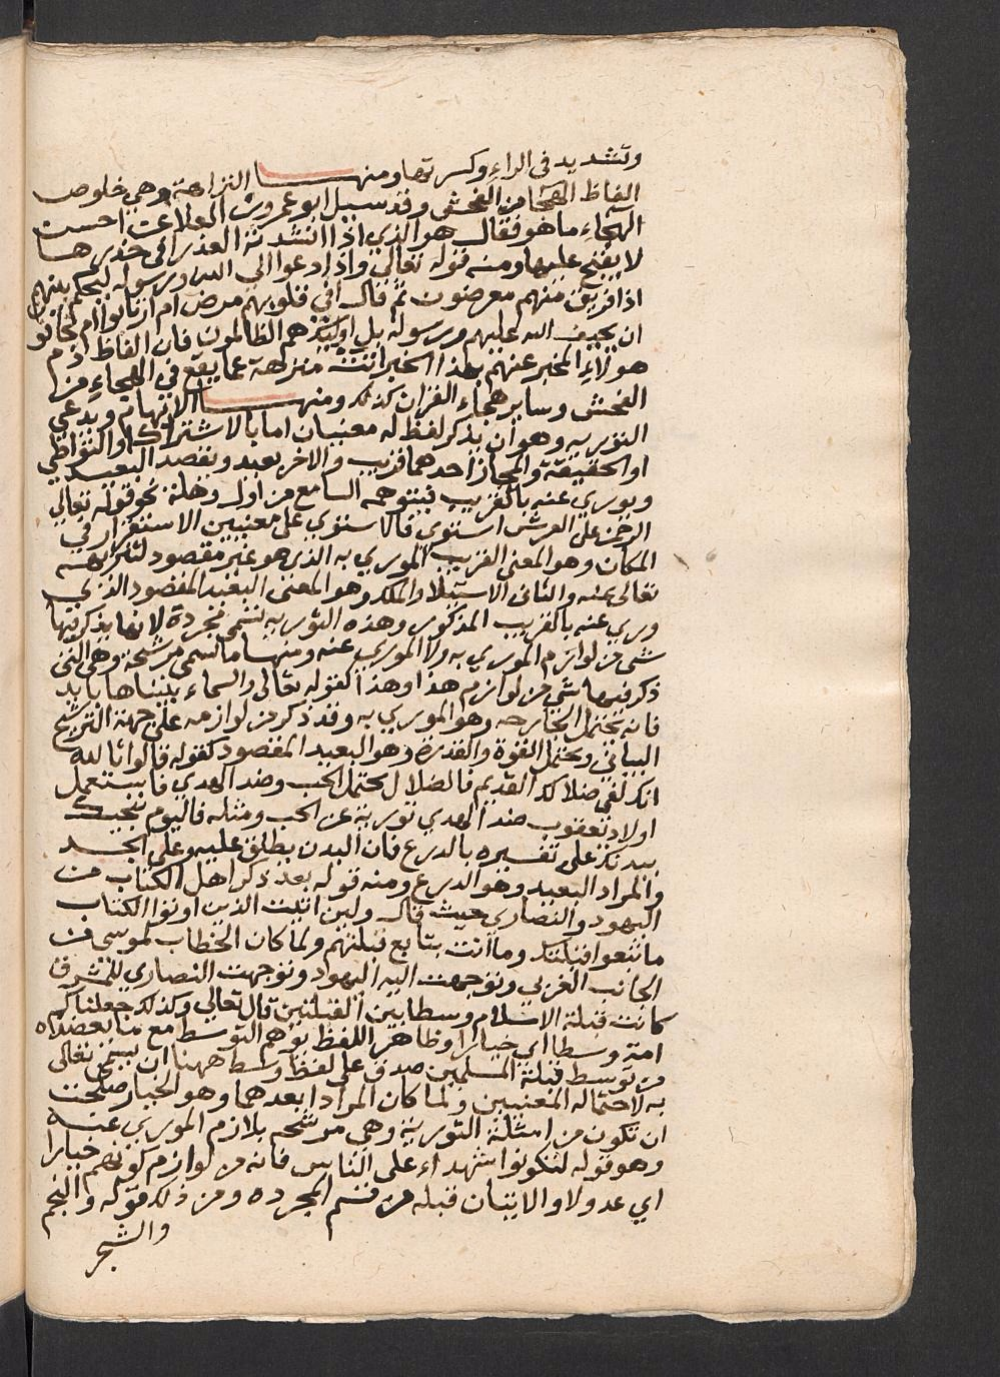 وتشديد في الراء وكسرتها ومنها النزاهة وهي خلوص
الفاظ الهجا من الفحش وقد سيل ابو عمرو بن العلا عن احسن
الهجاء ما هو فقال هو الذي اذا انشدته العذرا في خدرها
لا يقبح عليها ومنه قوله تعالي واذا دعوا الي الله ورسوله ليحكم بينهم
اذا فريق منهم معرضون ثم قال افي قلوبهم مرض ام ارتابوا ام يخافون
ان يحيف الله عليهم ورسوله بل اوليك هم الظالمون فان الفاظ ذم
هولاء المخبر عنهم بهذا الخبر اتت منزهة عما يقع في الهجاء من
الفحش وساير هجاء القران كذلك ومنها الايهام ويدعي
التورية وهو ان يذكر لفظ له معنيان اما بالاشتراك او التواطي
او الحقيقة والمجاز احدهما قريب والاخر بعيد ويقصد البعيد
ويوري عنه بالقريب فيتوهمه السامع من اول وهلة نحو قوله تعالي
الرحمن علي العرش استوي فالاستوي علي معنيين الاستقرار في
المكان وهو المعني القريب الموري به الذي هو غير مقصود لتنزيهه
تعالي عنه والثاني الاستيلا والملك وهو المعني البعيد المقصود الذي
وري عنه بالقريب المذكور وهذه التورية تسمي مجردة لانها يذكر فيها
شي من لوازم الموري به ولا الموري عنه ومنها ما تسمي مرشحة وهي التي
ذكر فيها شي من لوازم هذا وهذا كقوله تعالي والسماء بنيناها بايد
فانه يحتمل الجارحه وهو الموري به وقد ذكر من لوازمه علي جهة الترشيح
البناني ويحتمل القوة والقدرة وهو البعيد المقصود كقوله قالوا تالله
انك لفي ضلالك القديم فالضلال يحتمل الحب وضد الهدي فاستعمل
اولاد يعقوب ضد الهدي تورية عن الحب ومثله فاليوم ننجيك
ببدنك علي تفسيره بالدرع فان البدن يطلق عليه وعلي الجسد
والمراد البعيد وهو الدرع ومنه قوله بعد ذكر اهل الكتاب من
اليهود والنصاري حيث قال ولين اتيت الذين اوتوا الكتاب
ما تبعوا قبلتك وما انت بتابع قبلتهم ولما كان الخطاب لموسي من
الجانب الغربي وتوجهت اليه اليهود وتوجهت النصاري للمشرق
كانت قبلة الاسلام وسطا بين القبلتين قال تعالي وكذلك جعلناكم
امة وسطا اي خيارا وظاهر اللفظ يوهم التوسط مع ما يعضده
من توسط قبلة المسلمين صدق علي لفظ وسط ههنا ان يسمي تعالي
به لاحتماله المعنيين ولما كان المراد ابعدهما وهو الخيار صلحت
ان تكون من امثلة التورية وهي مرشحه بلازم الموري عنه
وهو قوله لتكونوا شهداء علي الناس فانه من لوازم كونهم خيارا
اي عدولا والايتان قبله من قسم المجرده ومن ذلك قوله والنجم
والشجر